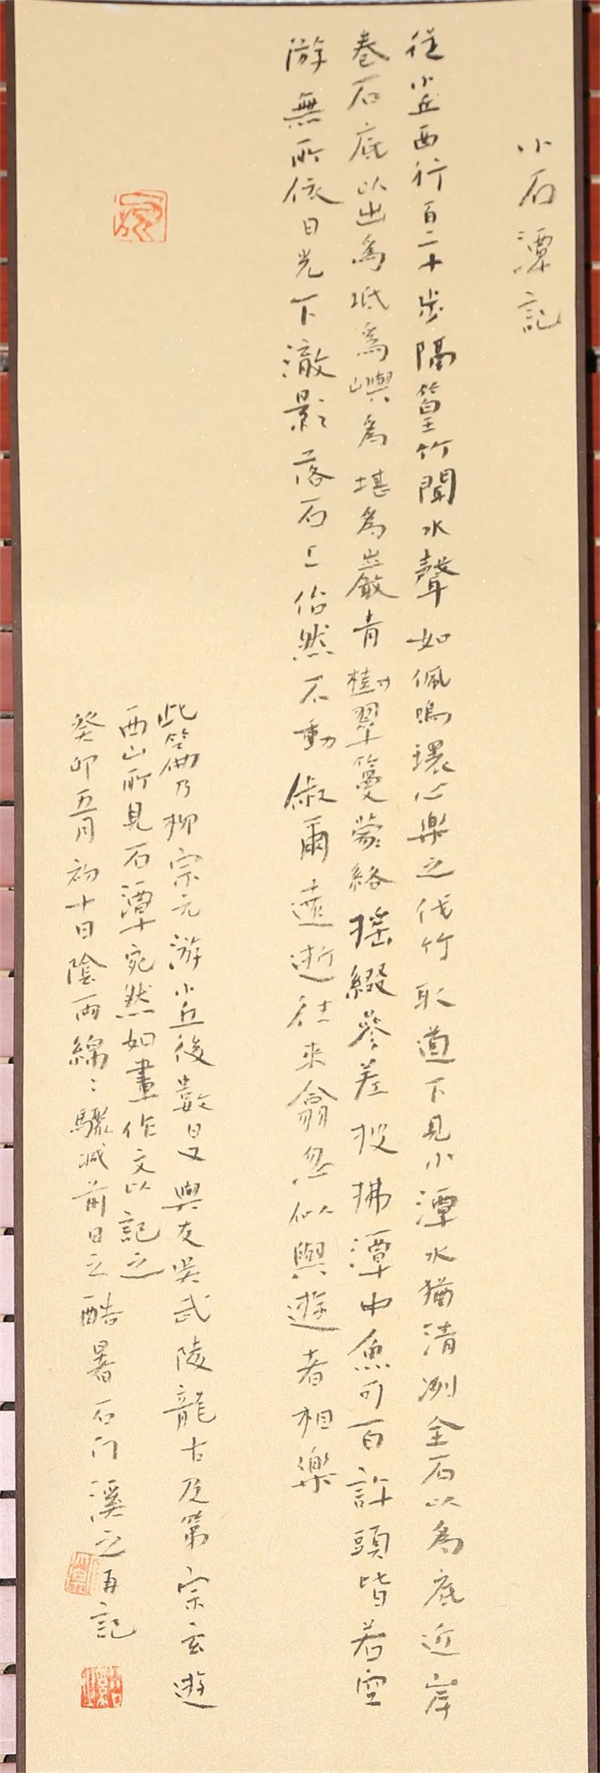 小石潭記
從小丘西行百二十步隔篁竹聞水聲如佩鳴環心樂之伐竹取道下見小潭水猶清冽全石以為底近岸
卷石底以出為坻為嶼為堪為巖青樹翠蔓蒙絡搖綴參差披拂潭中魚可百許頭皆若空
游無所依日光下澈影落石上佁然不動俶爾遠逝往來翕忽似與遊者相樂
此篇乃柳宗元游小丘後數日又與友吳武陵龍古及第宗玄遊
西山所見石潭宛然如畫作文以記之
癸卯五月初十日陰雨綿綿驟減前日之酷暑石門溪之再記